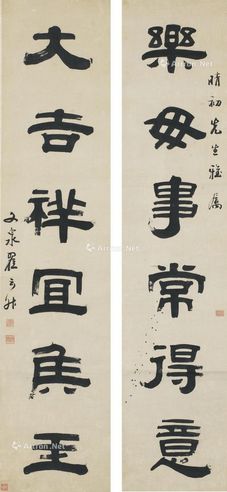 樂毋事常得意
晴初先生雅屬
大吉祥宜侯王
文泉翟云升